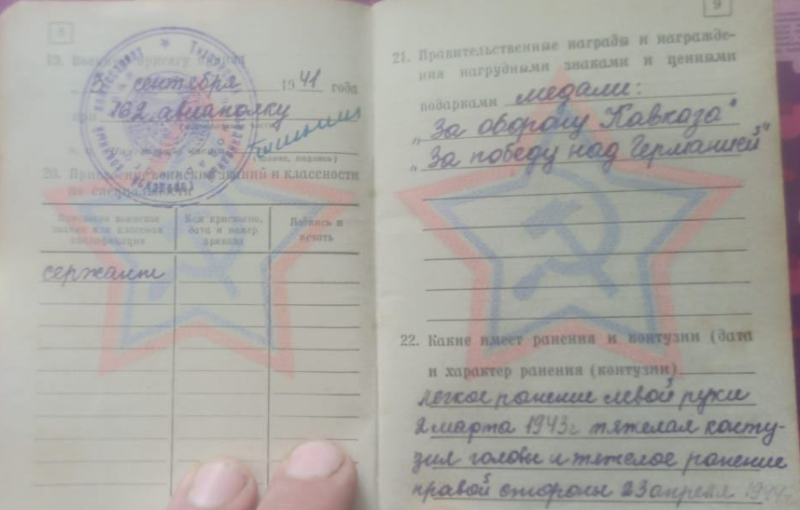 8
19. Военную присягу принял
7 сентября 1941 года
при 162 авиаполку
20. Присвоение воинских званий и классности
по специальности
Присвоено воинское
звание или классная
квалификация
Кем присвоено,
дата и номер
приказа
Подпись и
печать
сержант
9
21. Правительственные награды и награжде-
ния нагрудными знаками и ценными
подарками медали:
„За оборону Кавказа"
„За победу над Германией"
22. Какие имеет ранения и контузии (дата
и характер ранения (контузии)
легкое ранение левой руки
2 марта 1943 г тяжелая конту-
зия головы и тяжелое ранение
правой стороны 23 апреля 1944 г.